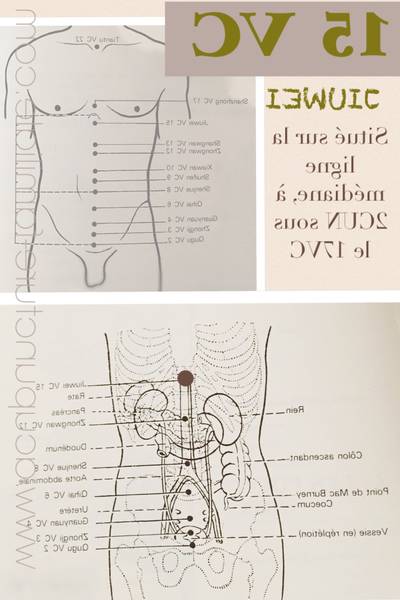 15 VC
JIUWEI
Situé sur la
ligne
médiane, à
2CUN sous
le 17VC
Tiantu VC 22
Shanzhong VC 17
Jiuwei VC 15
Shangwan VC 13
Zhongwan VC 12
Xiawan VC 10
Shuifen VC 9
Shenjue VC 8
Qihai VC 6
Guanyuan VC 4
Zhongji VC 3
Qugu VC 2
Jiuwei VC 15
Rate
Pancréas
Zhongwan VC 12
Duodénum
Shenjue VC 8
Aorte abdominale
Qihai VC 6
Uretère
Guanyuan VC 4
Zhongji VC 3
Qugu VC 2
Rein
Côlon ascendant
Point de Mac Burney
Caecum
Vessie (en réplétion)